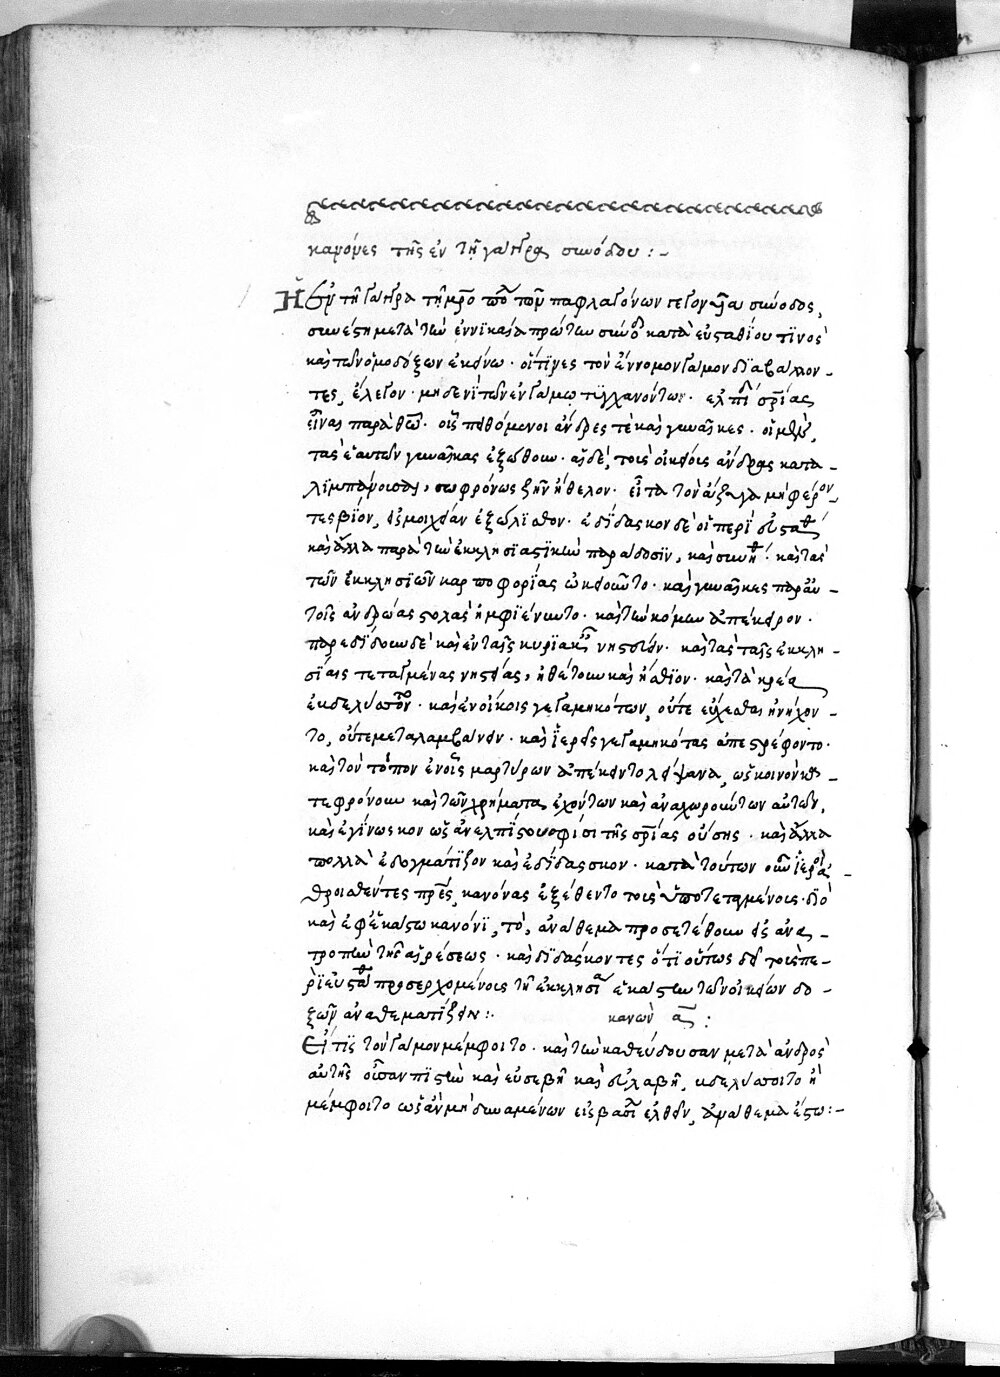 κανόνες τῆς ἐν τῇ γάγγρᾳ συνόδου :-
Ἡ ἐν τῇ γάγγρα τῇ μητροπόλει τῶν παφλαγόνων γεγονῦα σύνοδος,
συνέστη μετὰ τὴν ἐν νικαία πρώτην σύνοδον κατὰ εὐσταθίου τινὸς
καὶ τῶν ὁμοδόξων ἐκείνω · οἵτινες τὸν ἔννομον γάμον διαβάλλον-
τες, ἔλεγον · μηδενὶ τῶν ἐν γάμω τυγχανόντων · ἐλπίδα σωτηρίας
εἶναι παρὰ θεῶ · οἷς πειθόμενοι ἄνδρες τὲ καὶ γυναῖκες · οἱ μὲν,
τὰς ἑαυτῶν γυναῖκας ἐξώθουν · αἱ δὲ, τοὺς οἰκείους ἄνδρας κατα-
λιμπάνουσαι, σωφρόνως ζῆν ἤθελον · εἶτα τὸν ἄζυγα μὴ φέρον-
τες βίον, εἰς μοιχείαν ἐξωλίσθον · ἐδίδασκον δὲ οἱ περὶ εὐστάθιον
καὶ ἄλλα παρὰ τὴν ἐκκλησιαστικὴν παράδοσιν, καὶ συνήθειαν · καὶ τὰς
τῶν ἐκκλησιῶν καρποφορίας ὠκειοῦντο · καὶ γυναῖκες παρ' αὐ-
τοῖς ἀνδρώας στολὰς ἠμφιέννυντο · καὶ τὴν κόμην ἀπέκειρον ·
παρεδίδουν δὲ καὶ ἐν ταῖς κυριακαῖς νηστεύειν · καὶ τὰς ταῖς ἐκκλη-
σίαις τεταγμένας νηστείας, ἠθέτουν καὶ ἤσθιον · καὶ τὰ κρέα
ἐβδελύσσοντο · καὶ ἐν οἴκοις γεγαμηκότων, οὔτε εὔχεσθαι ἠνήχον-
το, οὔτε μεταλαμβάνειν · καὶ ἱερεῖς γεγαμηκότας ἀπεστρέφοντο ·
καὶ τὸν τόπον ἐν οἷς μαρτύρων ἀπέκειντο λείψανα, ὡς κοινὸν κα-
τεφρόνουν καὶ τῶν χρήματα ἐχόντων καὶ ἀναχωρούντων αὐτῶν,
καὶ ἐγίνωσκον ὡς ἀνελπίστου σφίσι τῆς σωτηρίας οὔσης · καὶ ἄλλα
πολλὰ ἐδογμάτιζον καὶ ἐδίδασκον · κατὰ τούτων οὖν ἱεροὶ
ἀθροισθέντες πατέρες, κανόνας ἐξέθεντο τοὺς ὑποτεταγμένους · διὸ
καὶ ἐφ' ἑκάστω κανόνι, τὸ, ἀνάθεμα προσετέθουν εἰς ἀνα-
τροπὴν τῆς αἱρέσεως · καὶ διδάσκοντες ὅτι οὕτως δεῖ τοὺς πε-
ρὶ εὐστάθιον προσερχομένους τῇ ἐκκλησία ἑκάστην τῶν οἰκείων δο-
ξῶν ἀναθεματίζειν :· κανὼν α :
Εἴ τις τὸν γάμον μέμφοιτο · καὶ τὴν καθεύδουσαν μετὰ ἀνδρὸς
αὐτῆς οὖσαν πιστὴν καὶ εὐσεβῆ καὶ εὐλαβῆ, βδελύσσοιτο ἢ
μέμφοιτο ὡς ἂν μὴ δυναμένην εἰς βασιλείαν ἐλθεῖν, ἀνάθεμα ἔστω :-